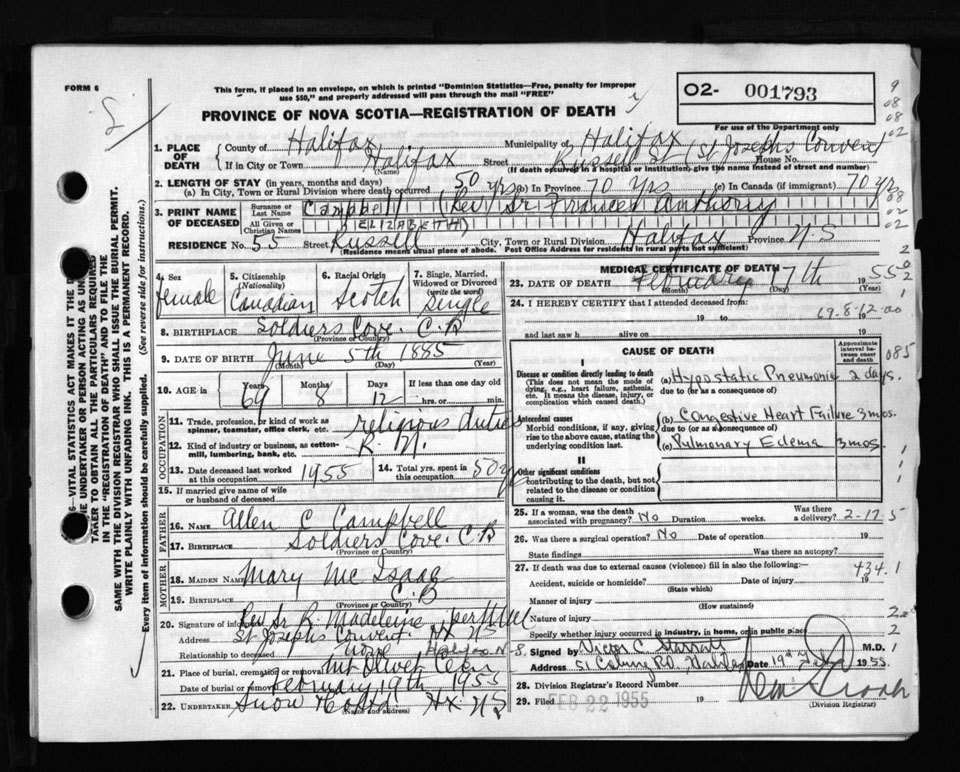 FORM 6
This form, if placed in an envelope, on which is printed "Dominion Statistics—Free, penalty for improper
use $50," and properly addressed will pass through the mail "FREE"
O2- 001793
PROVINCE OF NOVA SCOTIA—REGISTRATION OF DEATH
For use of the Department only
1. PLACE OF DEATH County of Halifax Municipality of Halifax
If in City or Town Halifax Street Russell St (St Josephs Convent House No.
(Name) (If death occurred in a hospital or institution-give the name instead of street and number)
2. LENGTH OF STAY (in years, months and days)
(a) In City, Town or Rural Division where death occurred 50 yrs (b) In Province 70 Yrs (c) In Canada (if immigrant) 70 yrs
3. PRINT NAME OF DECEASED Surname or Last Name Campbell (Rev) Sr Frances Anthony
All Given or Christian Names (ELIZABETH)
RESIDENCE No. 55 Street Russell City, Town or Rural Division Halifax Province N.S
(Residence means usual place of abode. Post Office Address for residents in rural parts not sufficient)
4. Sex female
5. Citizenship (Nationality) Canadian
6. Racial Origin Scotch
7. Single, Married, Widowed or Divorced (write the word) Single
8. BIRTHPLACE Soldiers Cove. C.B
(Province or Country)
9. DATE OF BIRTH June 5th 1885
(Month) (Day) (Year)
10. AGE in Years 69 Months 8 Days 12 If less than one day old
hrs. or min.
OCCUPATION
11. Trade, profession, or kind of work as spinner, teamster, office clerk, etc. religious duties
12. Kind of industry or business, as cotton-mill, lumbering, bank, etc. R.N.
13. Date deceased last worked at this occupation 1955
14. Total yrs. spent in this occupation 50 y
15. If married give name of wife or husband of deceased
FATHER
16. NAME Allen C Campbell
17. BIRTHPLACE Soldiers Cove. C.B
(Province or Country)
MOTHER
18. MAIDEN NAME Mary Mc Isaac
19. BIRTHPLACE C.B
(Province or Country)
20. Signature of informant Rev Sr R. Madeleine
Address St Josephs Convent. Hx NS
Relationship to deceased none
21. Place of burial, cremation or removal Mt Olivet Cem
Date of burial or removal February 19th 1955
22. UNDERTAKER Snow Hx. NS
(Name and address)
MEDICAL CERTIFICATE OF DEATH
23. DATE OF DEATH February 17th 1955
(Month) (Day)
24. I HEREBY CERTIFY that I attended deceased from
19 to 19
69-8-12.00
and last saw h alive on 19
CAUSE OF DEATH
Approximate interval between onset and death
I
Disease or condition directly leading to death
(This does not mean the mode of dying, e.g., heart failure, asthenia, etc. It means the disease, injury, or complication which caused death.)
(a) Hypostatic Pneumonia 2 days
due to (or as a consequence of)
Antecedent causes
Morbid conditions, if any, giving rise to the above cause, stating the underlying condition last.
(b) Congestive Heart Failure 3 mos.
due to (or as a consequence of)
(c) Pulmonary Edema 3 mos.
II
Other significant conditions contributing to the death, but not related to the disease or condition causing it.
25. If a woman, was the death associated with pregnancy? No Duration weeks. Was there a delivery? 2-17-5
26. Was there a surgical operation? No Date of operation 19
State findings Was there an autopsy?
27. If death was due to external causes (violence) fill in also the following:—
434.1
Accident, suicide or homicide? Date of injury 19
(State which)
Manner of injury
(How sustained)
Nature of injury
Specify whether injury occurred in industry, in home, or in public place
Signed by Victor C. M.D.
Address 51 Coburg RD. Halifax Date 19th Feb 1955.
28. Division Registrar's Record Number
29. Filed FEB 22 1955 19
(Division Registrar)
6—VITAL STATISTICS ACT MAKES IT THE
UNDERTAKER OR PERSON ACTING AS
TAKER TO OBTAIN ALL THE PARTICULARS REQUIRED
IN THE "REGISTRATION OF DEATH" AND TO FILE THE
SAME WITH THE DIVISION REGISTRAR WHO SHALL ISSUE THE BURIAL PERMIT.
WRITE PLAINLY WITH UNFADING INK. THIS IS A PERMANENT RECORD.
Every item of information should be carefully supplied. (See reverse side for instructions.)
9
08
08
02
08
02
02
2
085